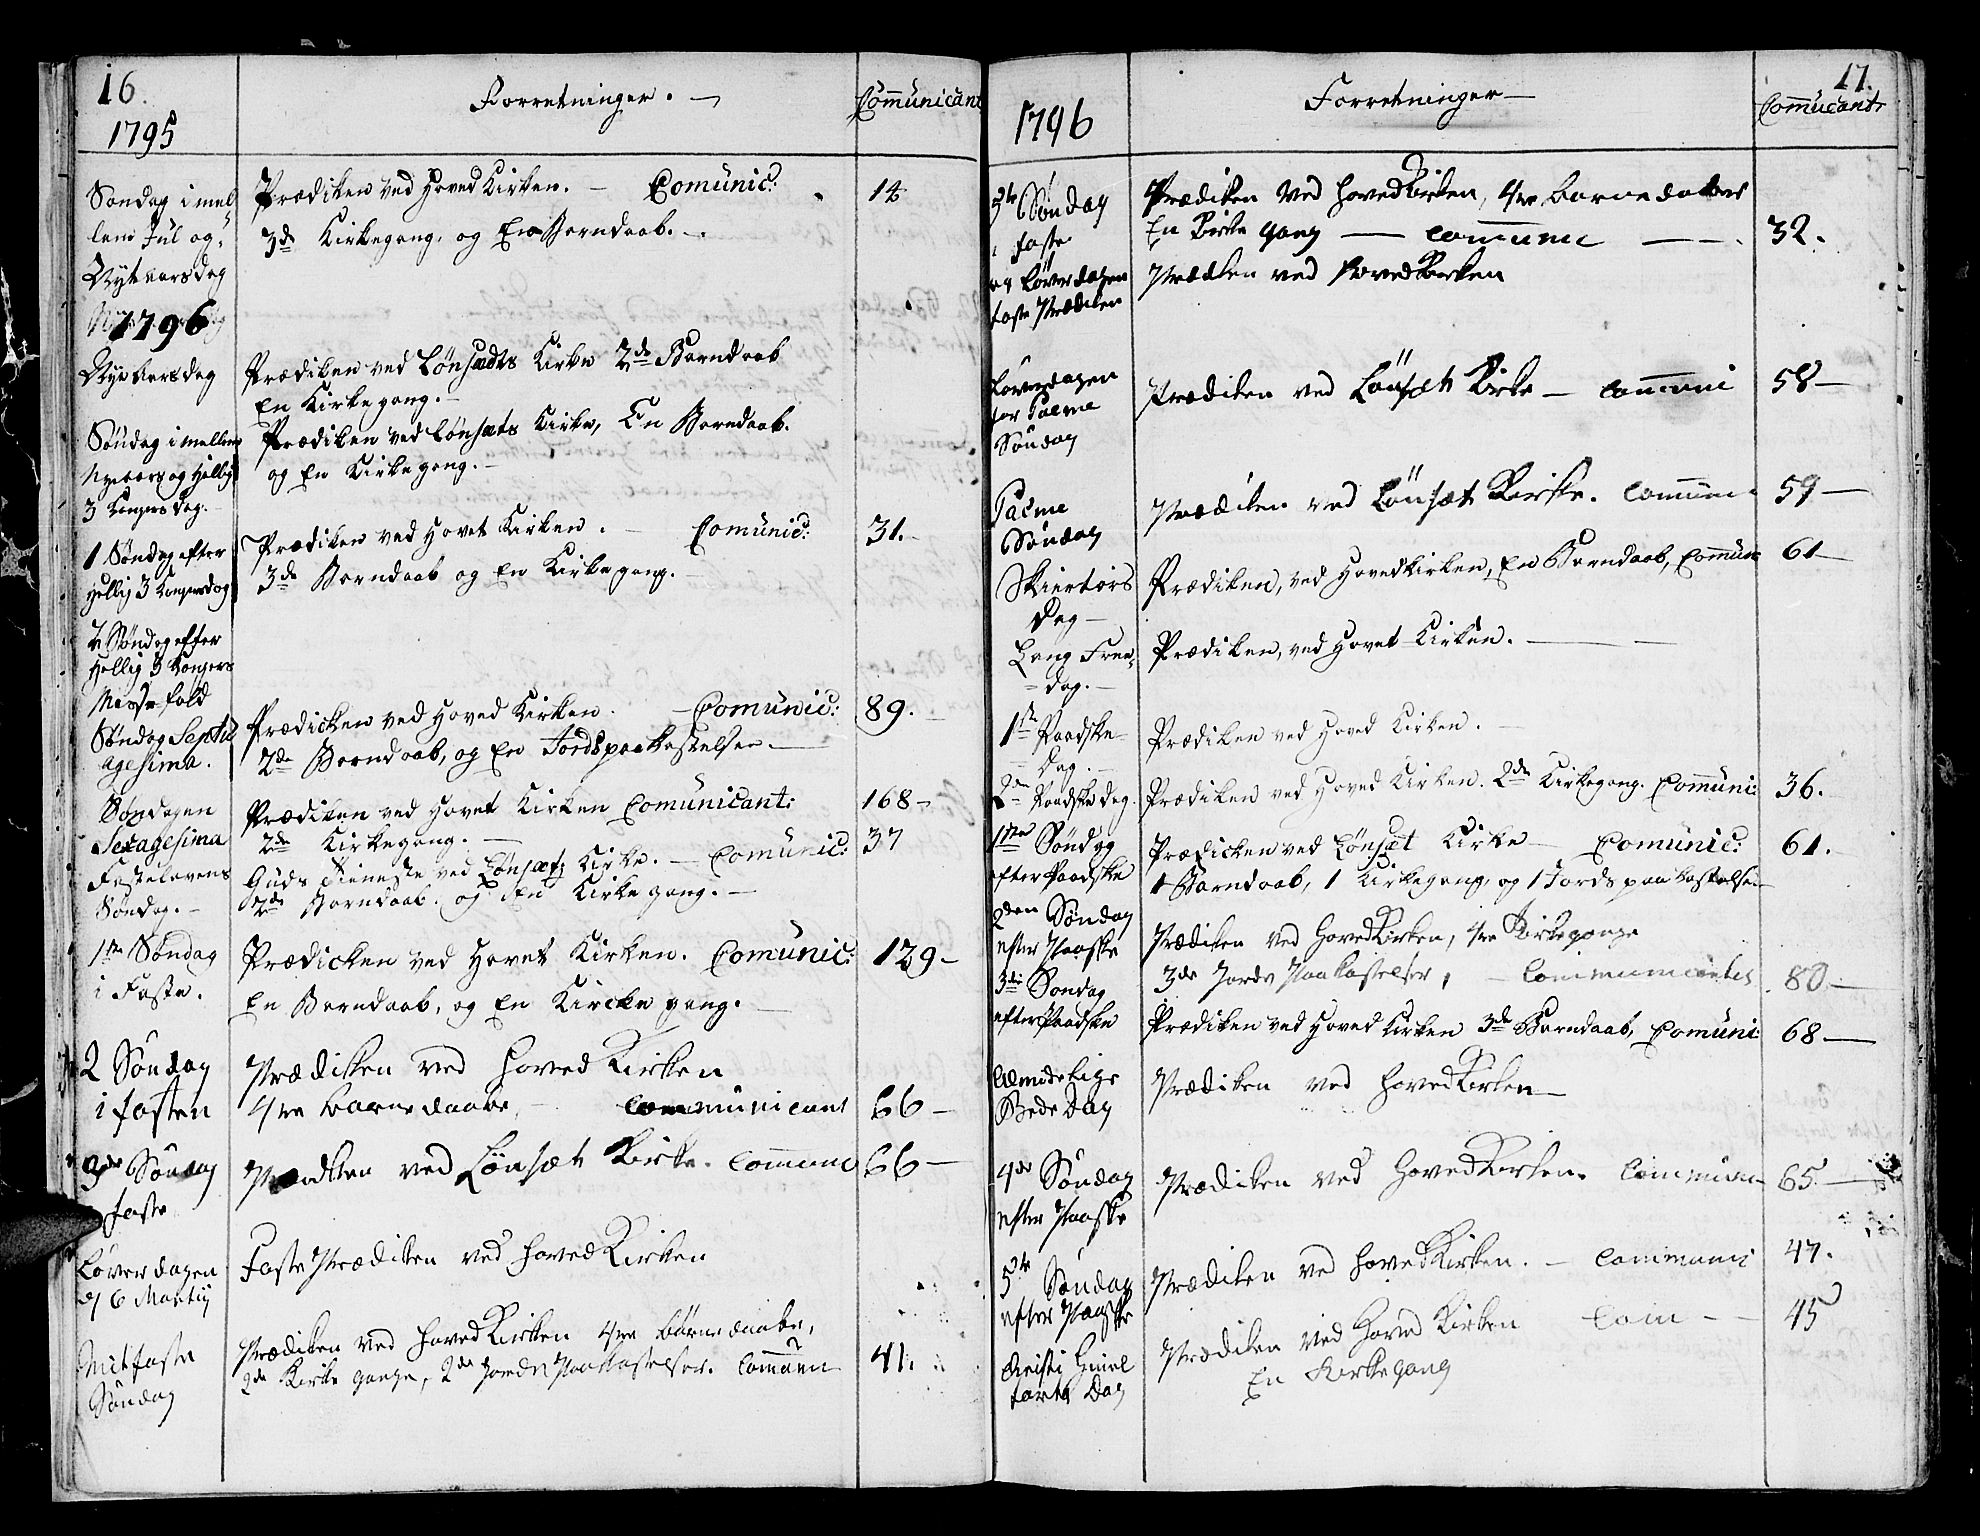 16.
1795
Forretninger.
Communicant
Søndag imel-
lem Jul og
Nytaarsdag
Prædiken ved Hoved Kirken. - Comunic: 14
3de Kirkegang, og En Barndaab.
1796
Nye Aarsdag
Prædiken ved Lønsætts Kirke 2de Barndaab
En Kirkegang.
Søndag imellem
Nyeaars og Hellig
3 Kongers dag.
Prædiken ved Lønsæts Kirke, En Barndaab.
og En Kirkegang.
1 Søndag efter
Hellig 3 Kongersdag
Prædiken ved Hovet Kirken. - Comunic: 31.
3de Barndaab og En Kirkegang.
2 Søndag efter
Hellig 3 Kongers
Messefald
Søndag Septu
agesima.
Prædicken ved Hoved Kirken. - Comunic: 89.
2de Barndaab, og En Jordspaakastelse
Søndagen
Sexagesima
Prædiken ved Hovet Kirken Comunicant: 168
2de Kirkegang.
Festelavens
Søndag.
Guds Tieneste ved Lønsæt Kirke. - Comunic: 37
2de Barndaab. og En Kirkegang.
1ste Søndag
i Faste.
Prædicken ved Hovet Kirken. Comunic: 129
En Barndaab, og En Kircke gang.
2 Søndag
i fasten
Prædicken ved Hoved Kirken
4re barnedaabe, - communicant 66
3de Søndag
i faste
Prædiken ved Lønsæt Kirke. Commun 66
Løverdagen
d 6 Martij
Faste Prædiken ved Hoved Kirken
Mitfaste
Søndag
Prædiken ved Hoved Kirken 4re børnedaabe,
2de Kirke gange, 2de Jords Paakastelser. Commun 41.
17.
1796
Forretninger
Commucant
5te Søndag
i faste
Prædiken ved Hoved Kirken, 4re barnedaaber
En Kirke gang - commune - 32.
og Løverdagen
faste Prædiken
Prædiken ved Hoved Kirken
Løverdagen
for Palme
Søndag
Prædiken ved Lønsæt Kirke - Communi 58
Palme
Søndag
Prædiken ved Lønsæt Kirke. Commun 59
Skiertors
Dag
Prædiken, ved Hovedkirken, En Barndaab, Comun 61
Lang Free-
dag.
Prædiken, ved Hovet Kirken.
1ste Paaske
Dag.
Prædiken ved Hoved Kirken.
2den Paaske dag.
Prædiken ved Hoved Kirken. 2de Kirkegang. Comuni: 36.
1ste Søndag
efter Paaske
Prædicken ved Lønsæt Kirke - Comunic: 61.
1 Barndaab, 1 Kirkegang, og 1 Jordspaakastelse
2den Søndag
efter Paaske
Prædiken ved Hoved Kirken, 4re Kirkegange
3de Jords Paakastelser, - Communicantes 80
3die Søndag
efter Paaske
Prædiken ved Hoved Kirken 3de Barndaab, Comuni 68
Almindelige
Bede Dag
Prædiken ved Hoved Kirken
4de Søndag
efter Paaske
Prædiken ved Hoved Kirken. Commun 65.
5te Søndag
efter Paaske
Prædiken ved Hoved Kirken. - Communi 47.
Christi Himel
farts Dag
Prædiken ved Hoved Kirken Com - 45
En Kirkegang